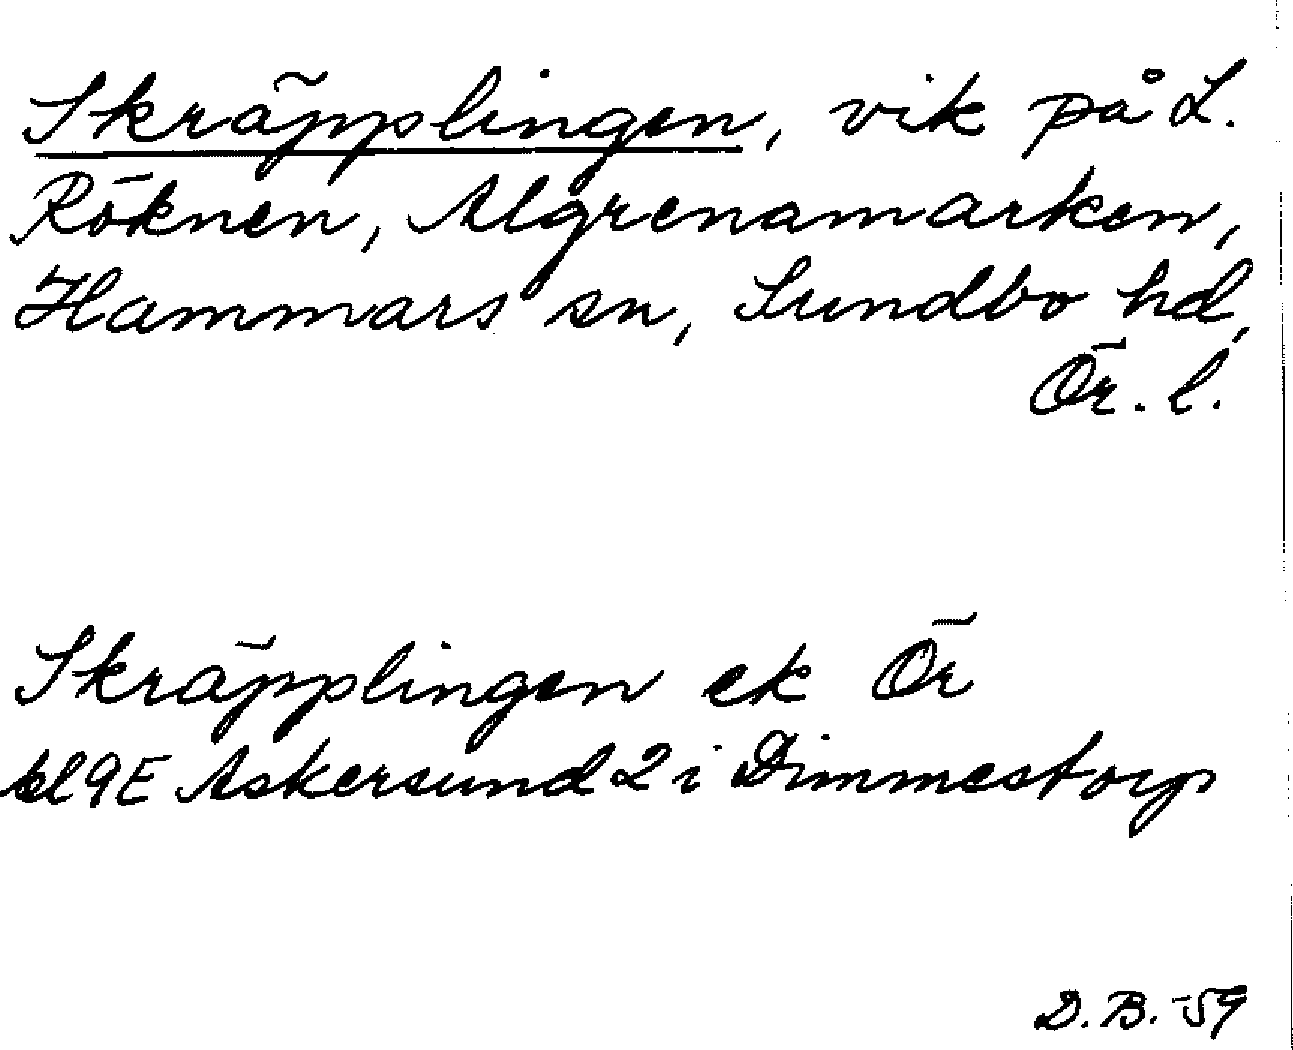 Skräpplingen, vik på L.
Röknen, Algrenamarken,
Hammars sn, Sundbo hd,
Ör. l.
Skräpplingen ek Ör
bl 9E Askersund 2 i Dimmestorp
D.B. -59